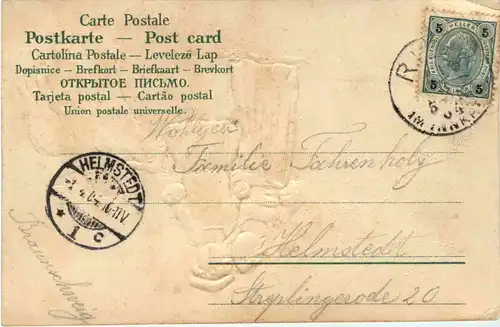 Carte Postale
Postkarte — Post card
Cartolina Postale – Levelező Lap
Dopisnice – Brefkort – Briefkaart – Brevkort
ОТКРЫТОЕ ПИСЬМО.
Tarjeta postal – Cartão postal
Union postale universelle.
5 HELLER 5
5 5
IM INNKR
Familie Fahrenholz
HELMSTEDT
* 1 c
Helmstedt
Braunschweig
20